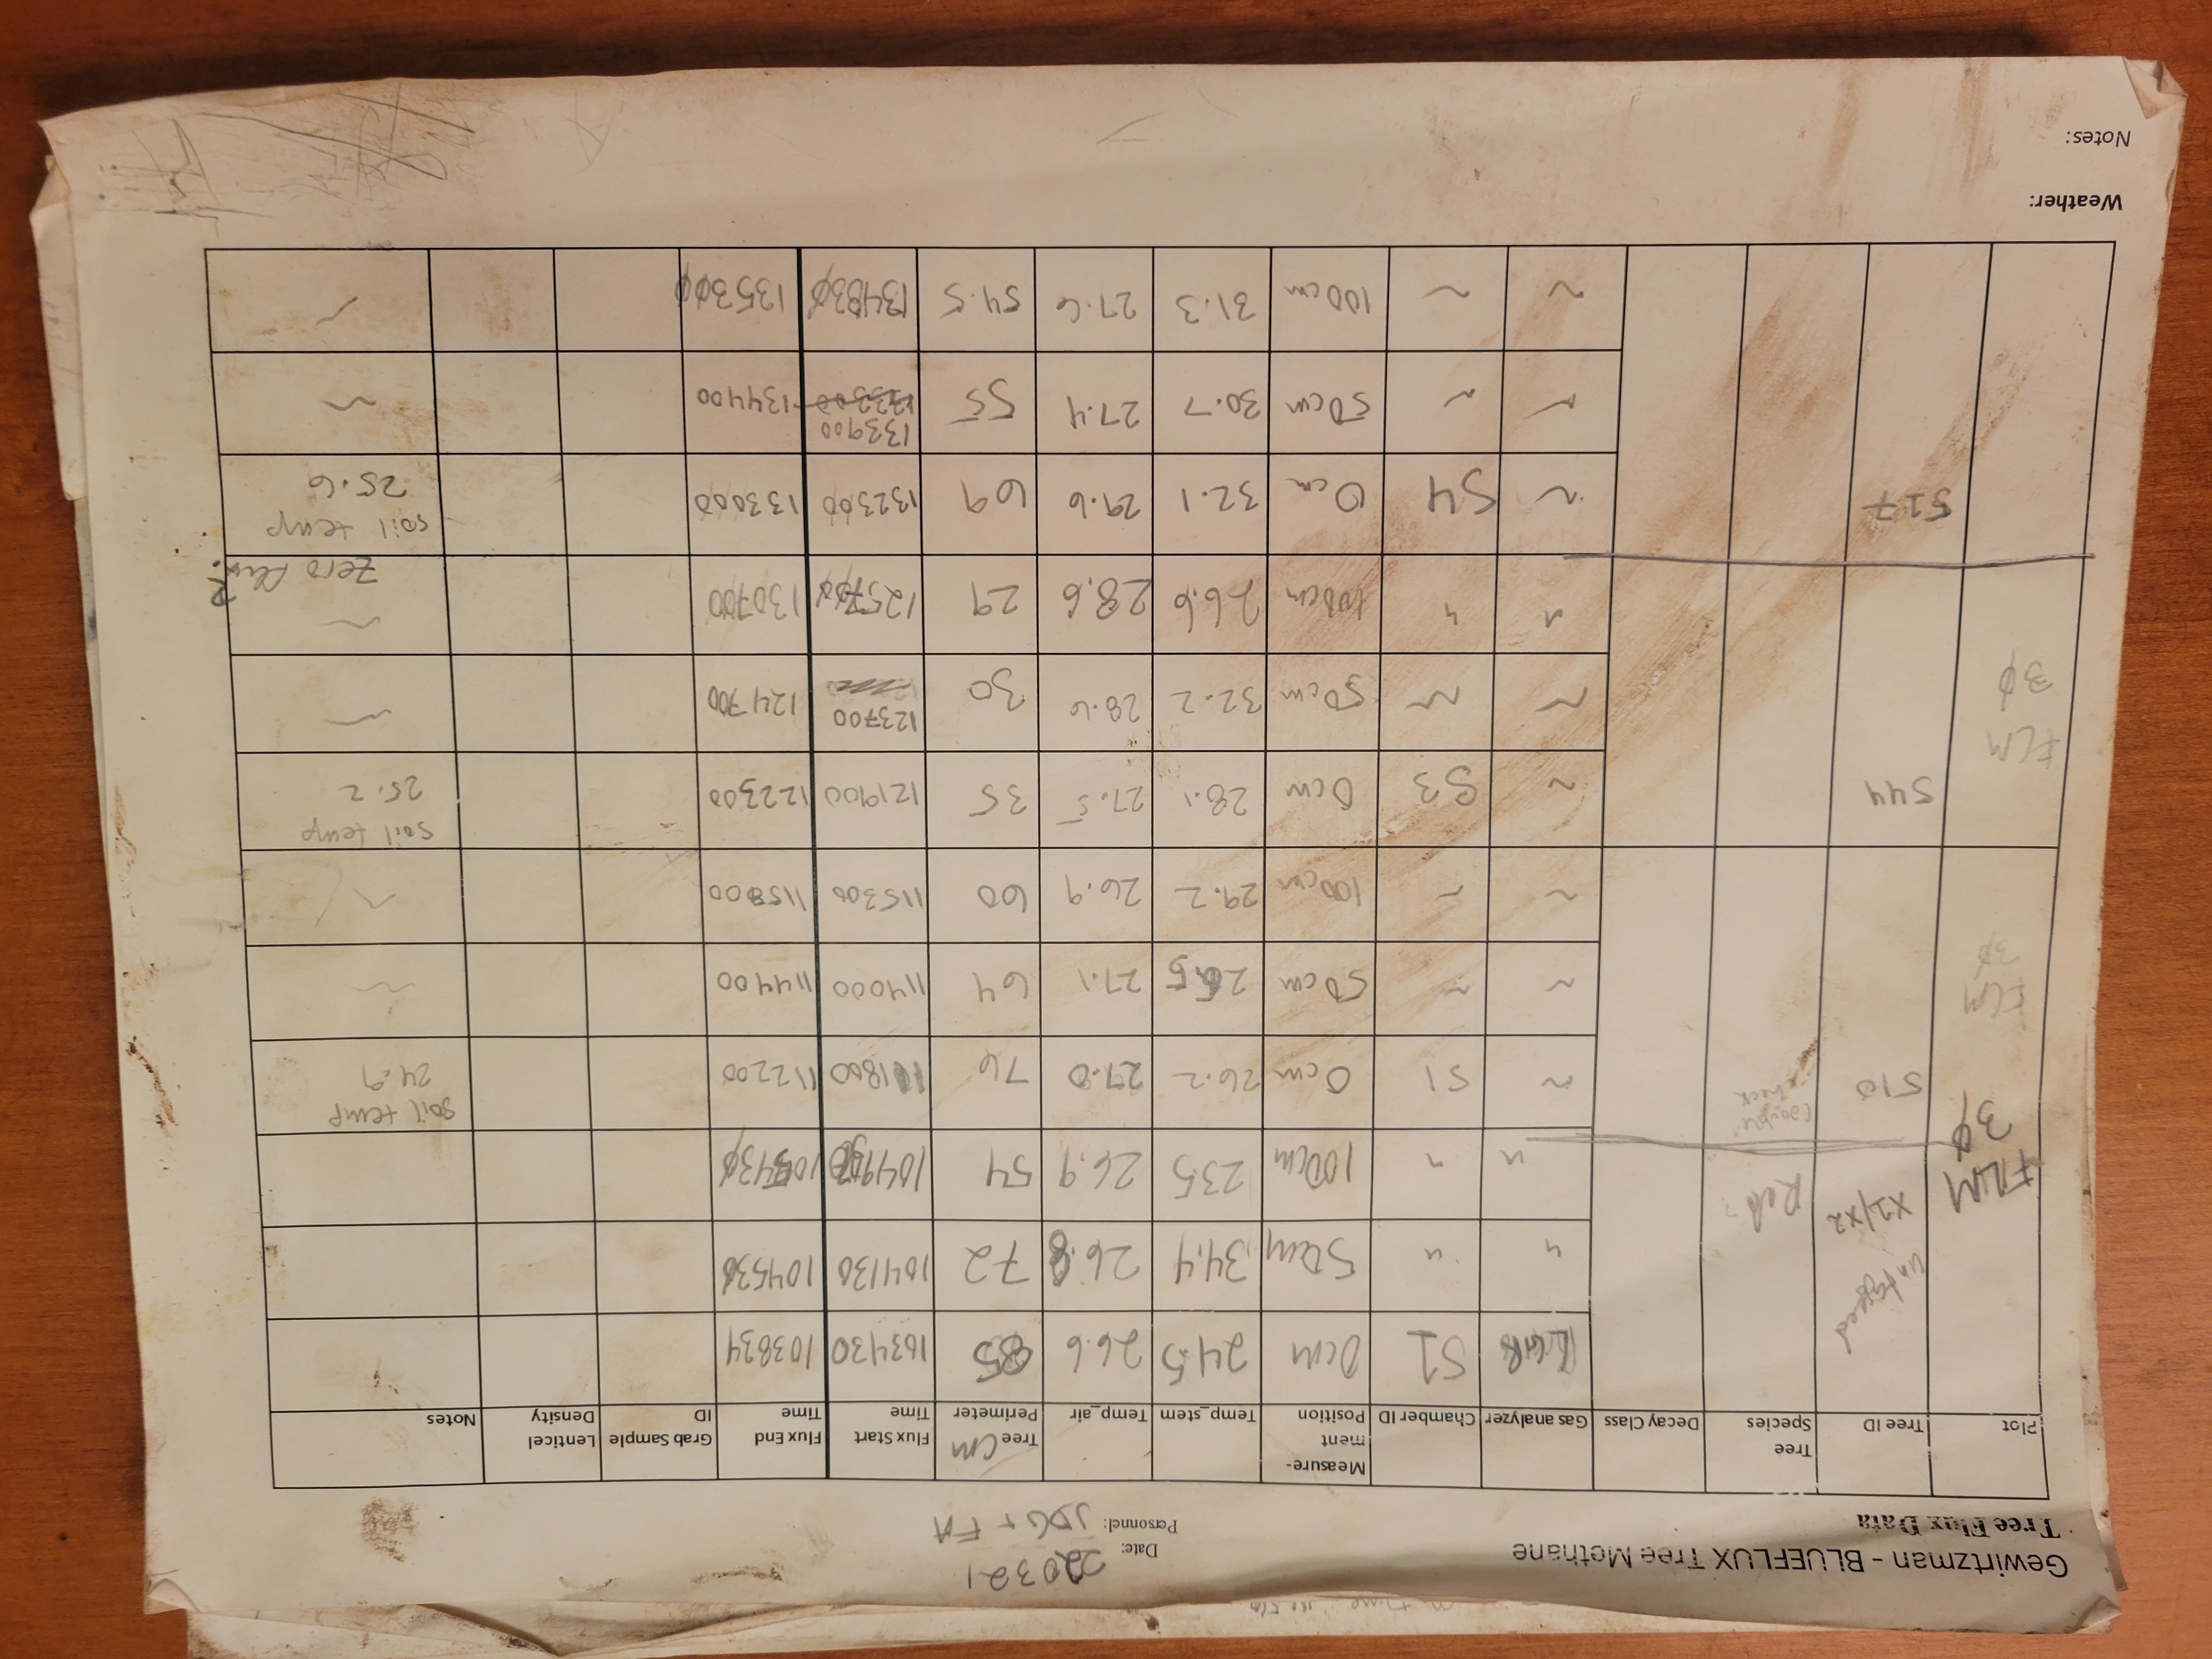 Gewirtzman - BLUEFLUX Tree Methane
Tree Flux Data
Date: 220321
Personnel: JDG + FM
Plot Tree ID Tree Species Decay Class Gas analyzer Chamber ID Measure-ment Position Temp_stem Temp_air Tree CM Perimeter Flux Start Time Flux End Time Grab Sample ID Lenticel Density Notes
untagged S1 0cm 24.5 26.6 85 103430 103834
" " 50cm 34.4 26.8 72 104130 104530
FLM 30 x21x2 " " 100cm 23.5 26.9 54 105430
510 (double check ~ S1 0cm 26.2 27.0 76 111800 112200 soil temp 24.9
FLM 30 ~ ~ 50cm 27.1 64 114000 114400 ~
~ ~ 100cm 29.2 26.9 60 115300 115800 ~
544 ~ S3 0cm 28.1 27.5 35 121900 122300 soil temp 25.2
FLM 30 ~ ~ 50cm 32.2 28.6 30 123700 124700 ~
" " 100cm 26.6 28.6 29 125700 130700 ~ Zero
517 ~ S4 0cm 32.1 29.6 69 132300 133000 soil temp 25.6
~ ~ 50cm 30.7 27.4 55 133900 134400 ~
~ ~ 100cm 31.3 27.6 54.5 134830 135300 ~
Weather:
Notes: